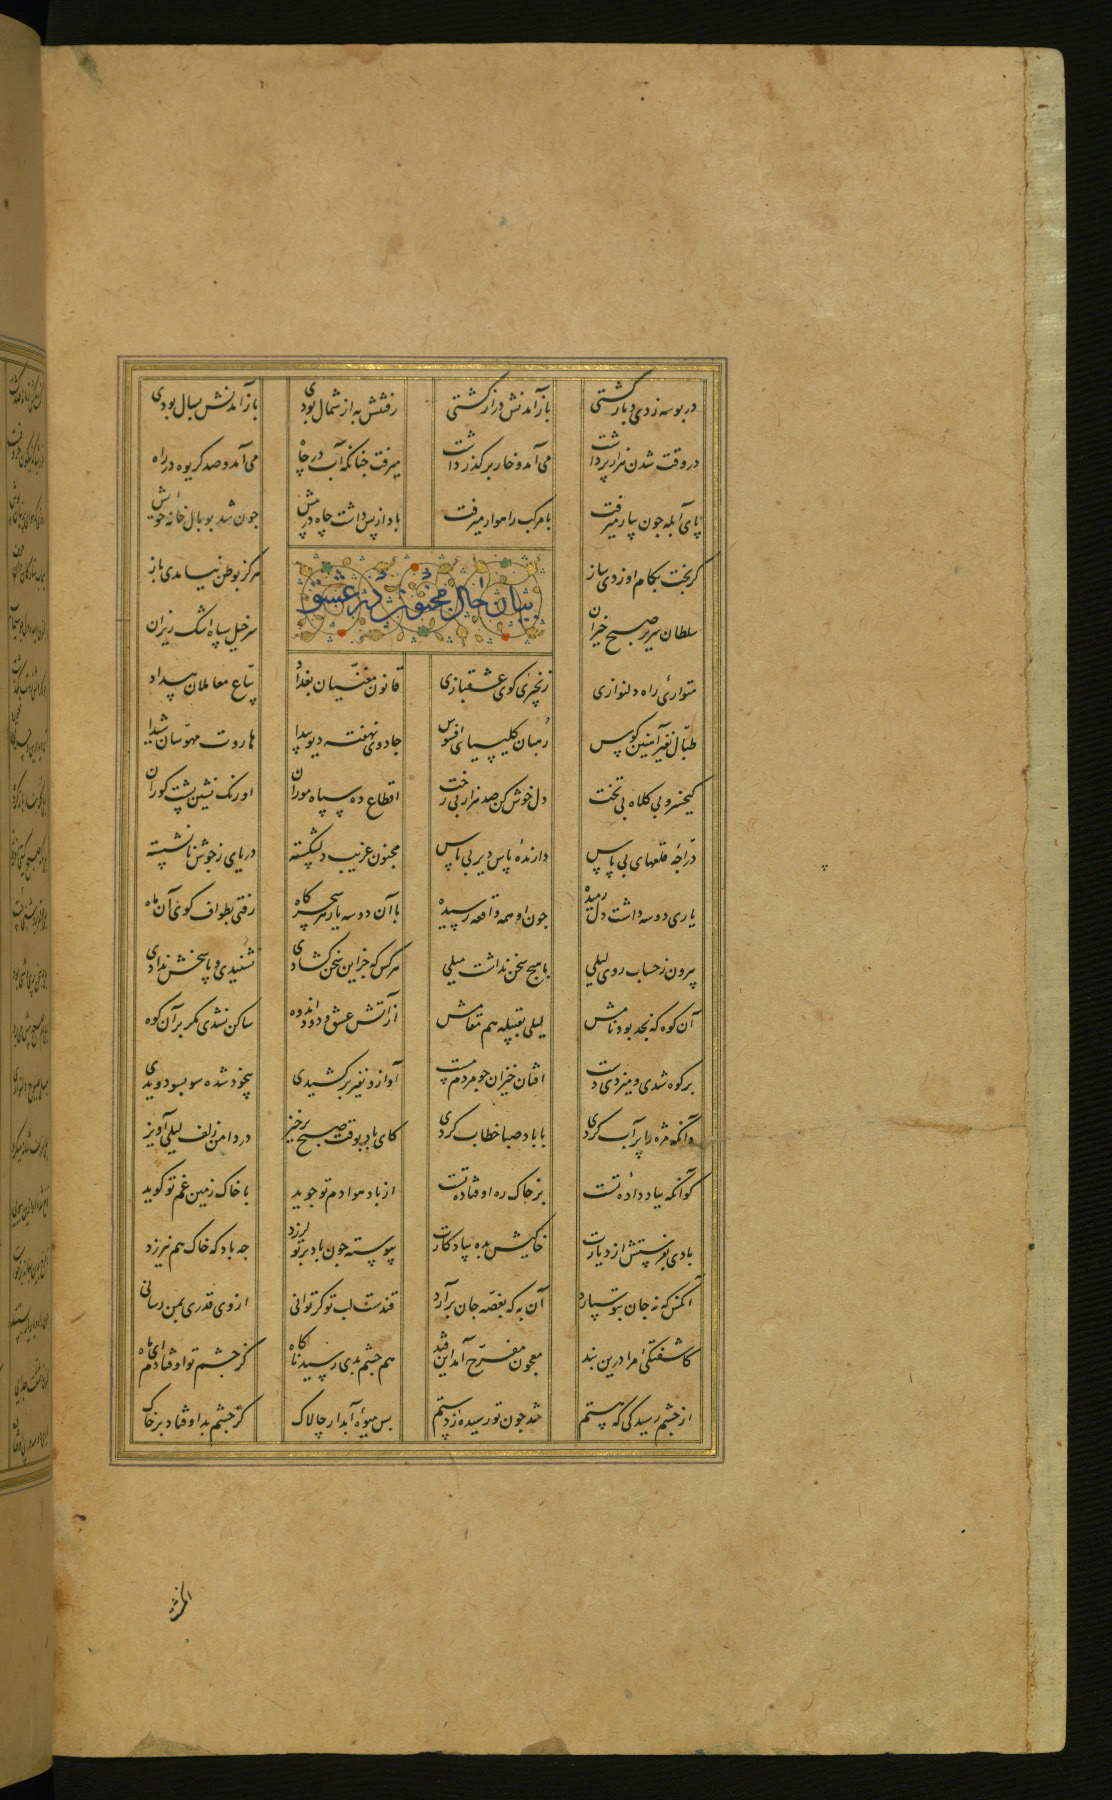 در بوسه زدی و بازگشتی بازآمدنش درازگشتی رفتنش به از شمال بودی بازآمدنش بسال بودی
در وقت شدن هزار پر داشت می آمد و خار بر گذر داشت میرفت چنانکه آب در چاه می آمد و صد کریوه در راه
پای آبله چون بیار میرفت با مرکب راهوار میرفت باد از پس داشت چاه در پیش چون شد بوبال خانه خویش
گر بخت بکام او زدی ساز هرگز بوطن نیامدی باز
بیان حال مجنون در عشق
سلطان سریر صبح خیزان سرخیل سپاه اشک ریزان
متواری راه دلنوازی زنجیری کوی عشقبازی قانون مغنیان بغداد بیاع معاملان بیداد
طبال نفیر آهنین کوس رهبان کلیسیای افسوس جادوی نهفته دیو پیدا هاروت مهوسان شیدا
کیخسرو بی کلاه بی تخت دل خوش کن صد هزار بی رخت اقطاع ده سپاه موران اورنگ نشین پشت کوران
دراجه قلعهای بی پاس دارنده پاس دیر بی پاس مجنون غریب دلشکسته دریای زجوش نانشسته
یاری دو سه داشت دل رمیده چون او همه واقعه رسیده با آن دو سه یار هر سحرگاه رفتی بطواف کوی آن ماه
بیرون ز حساب روی لیلی با هیچ سخن نداشت میلی هرکس که جز این سخن گشادی نشنیدی و پاسخش ندادی
آن کوه که نجد بود نامش لیلی بقبیله هم مقامش از آتش عشق و دود اندوه ساکن نشدی مگر بر آن کوه
بر کوه شدی و میزدی دست افتان خیزان چو مردم مست آواز و نفیر برکشیدی بیخود شده سو بسو دویدی
وانگه مژه را پر آب کردی با باد صبا خطاب کردی کای باد بوقت صبح برخیز در دامن زلف لیلی آویز
گو آنکه بباد داده تست بر خاک ره اوفتاده تست از باد هوا دم تو جوید با خاک زمین غم تو گوید
بادی بفرستش از دیارت خاکیش بده بیادگارت پیوسته چو باد بر تو لرزد چه باد که خاک هم نیرزد
آنکس که نه جان بتو سپارد آن به که بغصه جان برآرد قندست لب تو گر توانی از وی قدری بمن رسانی
کاشفتگی مرا درین بند معجون مفرح آمد این قند هم چشم بدی رسید ناگاه کز چشم تو اوفتادم ای ماه
از چشم رسیدگی که هستم شد چون تو رسیده ز دستم بس میوه آبدار چالاک کز چشم بد اوفتاد بر خاک